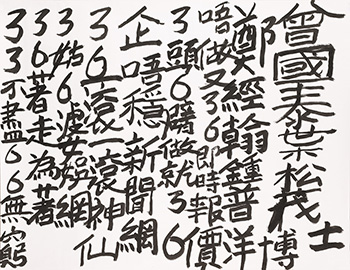 曾國泰葉松茂
鄭經翰鍾普洋博士
唔做又36即時報價
3頭6臂做就36
企唔穩新聞網
36一滾神仙
3姑6婆網
36著走為著
33不盡66無窮